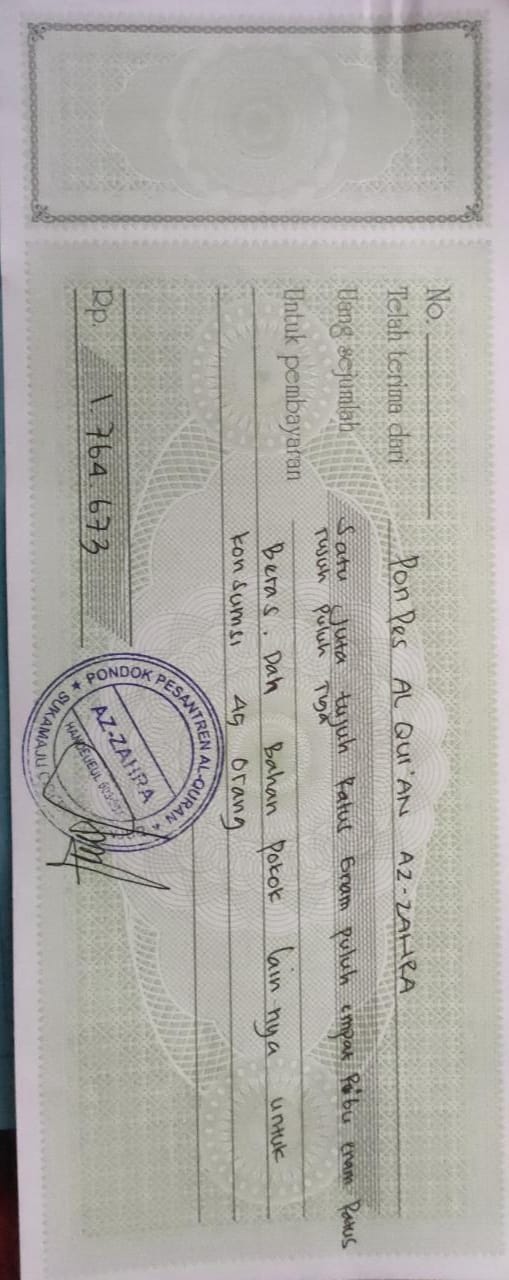 No.
Telah terima dari PonPes AL QUR'AN AZ-ZAHRA
Uang sejumlah Satu juta tujuh Ratus Enam puluh empat Ribu enam Ratus
Tujuh puluh Tiga
Untuk pembayaran
Beras. Dah Bahan Pokok lain nya untuk
konsumsi 49 orang
Rp. 1.764.673
PONDOK PESANTREN AL-QURAN
AZ-ZAHRA
SUKAMAJU